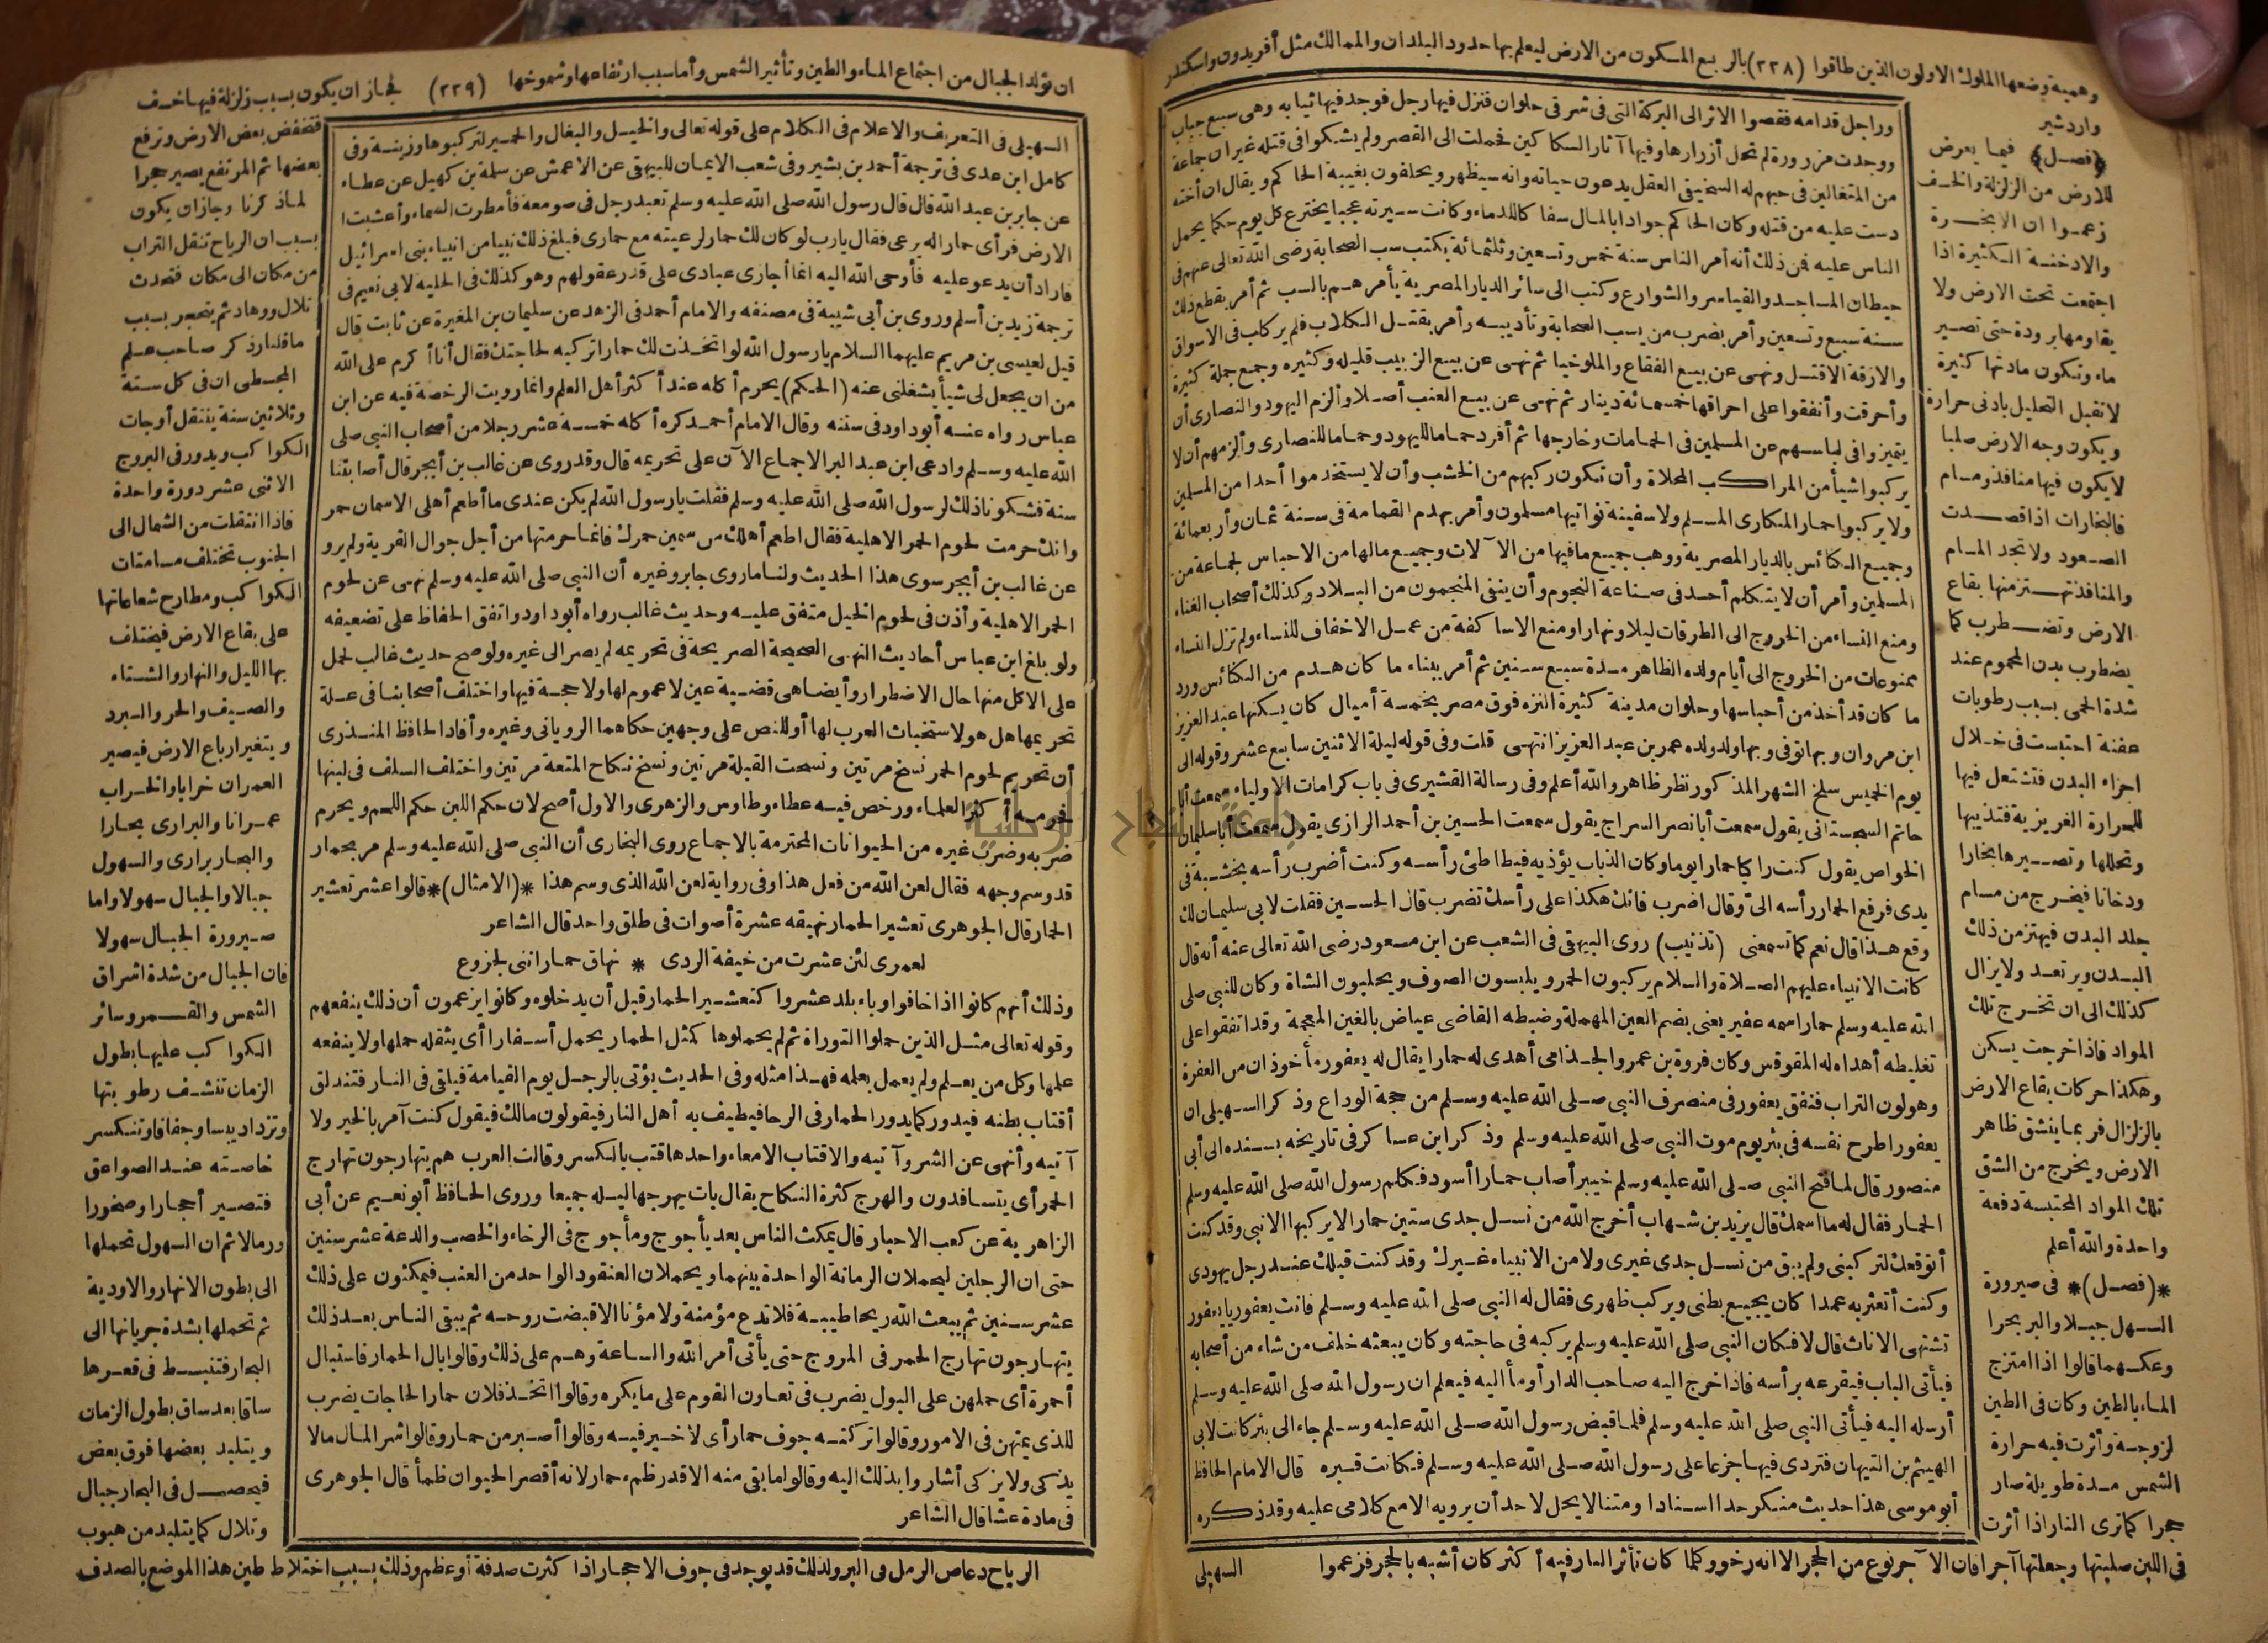 وهمية وضعها الملوك الاولون الذين طاقوا (٢٣٨) بالربع المسكون من الارض ليعلم بها حدود البلدان والممالك مثل أفريدون واسكندر
واردشير
(فصل) فيما يعرض
للارض من الزلزلة والخسف
زعموا ان الابخرة
والادخنة الكثيرة اذا
اجتمعت تحت الارض ولا
يقاومها برودة حتى تصير
ماء وتكون مادتها كثيرة
لا تقبل التحليل بادنى حرارة
ويكون وجه الارض صلبا
لا يكون فيها منافذ ومسام
فالبخارات اذا قصدت
الصعود ولا تجد المسام
والمنافذ تهتز منها بقاع
الارض وتضطرب كما
يضطرب بدن المحموم عند
شدة الحمى بسبب رطوبات
عفنة احتبست فى خلال
اجزاء البدن فتشتعل فيها
الحرارة الغريزية فتذيبها
وتحللها وتصيرها بخارا
ودخانا فيخرج من مسام
جلد البدن فيهتز من ذلك
البدن ويرتعد ولا يزال
كذلك الى ان تخرج تلك
المواد فاذا خرجت يسكن
وهكذا حركات بقاع الارض
بالزلزال فربما ينشق ظاهر
الارض ويخرج من الشق
تلك المواد المحتبسة دفعة
واحدة والله أعلم
*(فصل)* فى صيرورة
السهل جبلا والبر بحرا
وعكسهما قالوا اذا امتزج
الماء بالطين وكان فى الطين
لزوجة وأثرت فيه حرارة
الشمس مدة طويلة صار
حجرا كما ترى النار اذا أثرت
فى اللبن صلبتها وجعلتها آجرا فان الآجر نوع من الحجر الا انه رخو وكلما كان تأثير النار فيه أكثر كان أشبه بالحجر فزعموا
وراجل قدامه فقصوا الاثر الى البركة التى فى شرقى حلوان فنزل فيها رجل فوجد فيها ثيابه وهى سبع جباب
ووجدت مزرورة لم تحل أزرارها وفيها آثار السكاكين فحملت الى القصر ولم يشكوا فى قتله غير ان جماعة
من المتغالين فى حبهم له السخيفى العقل يدعون حياته وانه سيظهر ويحلفون بغيبة الحاكم ويقال ان أخته
دست عليه من قتله وكان الحاكم جوادا بالمال سفاكا للدماء وكانت سيرته عجبا يخترع كل يوم حكما يحمل
الناس عليه فمن ذلك أنه أمر الناس سنة خمس وتسعين وثلثمائة بكتب سب الصحابة رضى الله تعالى عنهم فى
حيطان المساجد والقياسر والشوارع وكتب الى سائر الديار المصرية يأمرهم بالسب ثم أمر بقطع ذلك
سنة سبع وتسعين وأمر بضرب من يسب الصحابة وتأديبه وأمر بقتل الكلاب فلم ير كلب فى الاسواق
والازقة الا قتل ونهى عن بيع الفقاع والملوخيا ثم نهى عن بيع الزبيب قليله وكثيره وجمع جملة كثيرة
وأحرقت وأنفقوا على احراقها خمسمائة دينار ثم نهى عن بيع العنب أصلا وألزم اليهود والنصارى أن
يتميزوا فى لباسهم عن المسلمين فى الحمامات وخارجها ثم أفرد حماما لليهود وحماما للنصارى وألزمهم أن لا
يركبوا شيأ من المراكب المحلاة وأن تكون ركبهم من الخشب وأن لا يستخدموا أحدا من المسلمين
ولا يركبوا حمار المكارى المسلم ولا سفينة نواتيها مسلمون وأمر بهدم القمامة فى سنة ثمان وأربعمائة
وجميع الكنائس بالديار المصرية ووهب جميع ما فيها من الآلات وجميع مالها من الاحباس لجماعة من
المسلمين وأمر أن لا يتكلم أحد فى صناعة النجوم وأن ينفى المنجمون من البلاد وكذلك أصحاب الغناء
ومنع النساء من الخروج الى الطرقات ليلا ونهارا ومنع الاساكفة من عمل الاخفاف للنساء ولم تزل النساء
ممنوعات من الخروج الى أيام ولده الظاهر مدة سبع سنين ثم أمر ببناء ما كان هدم من الكنائس ورد
ما كان قد أخذ من أحباسها وحلوان مدينة كثيرة النزه فوق مصر بخمسة أميال كان يسكنها عبد العزيز
ابن مروان وبها توفى وبها ولد ولده عمر بن عبد العزيز انتهى قلت وفى قوله ليلة الاثنين سابع عشر وقوله الى
يوم الخميس سلخ الشهر المذكور نظر ظاهر والله أعلم وفى رسالة القشيرى فى باب كرامات الاولياء سمعت أبا
حاتم السجستانى يقول سمعت أبا نصر السراج يقول سمعت الحسين بن أحمد الرازى يقول سمعت أبا سليمان
الخواص يقول كنت راكبا حمارا يوما وكان الذباب يؤذيه فيطأطئ رأسه وكنت أضرب رأسه بخشبة فى
يدى فرفع الحمار رأسه الىّ وقال اضرب فانك هكذا على رأسك تضرب قال الحسين فقلت لابى سليمان لك
وقع هذا قال نعم كما تسمعنى (تذنيب) روى البيهقى فى الشعب عن ابن مسعود رضى الله تعالى عنه أنه قال
كانت الانبياء عليهم الصلاة والسلام يركبون الحمر ويلبسون الصوف ويحلبون الشاة وكان للنبى صلى
الله عليه وسلم حمار اسمه عفير يعنى بضم العين المهملة وضبطه القاضى عياض بالغين المعجمة وقد اتفقوا على
تغليطه أهداه له المقوقس وكان فروة بن عمرو الجذامى أهدى له حمارا يقال له يعفور مأخوذان من العفرة
وهو لون التراب فنفق يعفور فى منصرف النبى صلى الله عليه وسلم من حجة الوداع وذكر السهيلى ان
يعفورا طرح نفسه فى بئر يوم موت النبى صلى الله عليه وسلم وذكر ابن عساكر فى تاريخه بسنده الى أبى
منصور قال لما فتح النبى صلى الله عليه وسلم خيبر أصاب حمارا أسود فكلم رسول الله صلى الله عليه وسلم
الحمار فقال له ما اسمك قال يزيد بن شهاب أخرج الله من نسل جدى ستين حمارا لا يركبها الا نبى وقد كنت
أتوقعك لتركبنى ولم يبق من نسل جدى غيرى ولا من الانبياء غيرك وقد كنت قبلك عند رجل يهودى
وكنت أتعثر به عمدا كان يجيع بطنى ويركب ظهرى فقال له النبى صلى الله عليه وسلم فانت يعفور يا يعفور
تشتهى الاناث قال لا فكان النبى صلى الله عليه وسلم يركبه فى حاجته وكان يبعثه خلف من شاء من أصحابه
فيأتى الباب فيقرعه برأسه فاذا خرج اليه صاحب الدار أومأ اليه فيعلم ان رسول الله صلى الله عليه وسلم
أرسله اليه فيأتى النبى صلى الله عليه وسلم فلما قبض رسول الله صلى الله عليه وسلم جاء الى بئر كانت لابى
الهيثم بن التيهان فتردى فيها جزعا على رسول الله صلى الله عليه وسلم فكانت قبره قال الامام الحافظ
أبو موسى هذا حديث منكر جدا اسنادا ومتنا لا يحل لاحد أن يرويه الا مع كلامى عليه وقد ذكره
السهيلى
ان تولد الجبال من اجتماع الماء والطين وتأثير الشمس وأما سبب ارتفاعها وشموخها (٢٣٩) فجاز ان يكون بسبب زلزلة فيها خسف
فتخفض بعض الارض وترفع
بعضها ثم المرتفع يصير حجرا
لما ذكرنا وجاز ان يكون
بسبب ان الرياح تنقل التراب
من مكان الى مكان فتحدث
تلال ووهاد ثم يتحجر بسبب
ما قلنا وذكر صاحب علم
المجسطى ان فى كل ستة
وثلاثين سنة ينتقل أوجات
الكواكب ويدور فى البروج
الاثنى عشر دورة واحدة
فاذا انتقلت من الشمال الى
الجنوب تختلف مسامتات
الكواكب ومطارح شعاعاتها
على بقاع الارض فيختلف
بها الليل والنهار والشتاء
والصيف والحر والبرد
ويتغير ارباع الارض فيصير
العمران خرابا والخراب
عمرانا والبرارى بحارا
والبحار برارى والسهول
جبالا والجبال سهولا واما
صيرورة الجبال سهولا
فان الجبال من شدة اشراق
الشمس والقمر وسائر
الكواكب عليها بطول
الزمان تنشف رطوبتها
وتزداد يبسا وجفافا وتنكسر
خاصته عند الصواعق
فتصير أحجارا وصخورا
ورمالا ثم ان السهول تحملها
الى بطون الانهار والاودية
ثم تحملها بشدة جريانها الى
البحار فتنبسط فى قعرها
ساقا بعد ساق بطول الزمان
ويتلبد بعضها فوق بعض
فيحصل فى البحار جبال
وتلال كما يتلبد من هبوب
الرياح دعاص الرمل فى البر ولذلك قد يوجد فى جوف الاحجار اذا كثرت صدفة أو عظم وذلك بسبب اختلاط طين هذا الموضع بالصدف
السهيلى فى التعريف والاعلام فى الكلام على قوله تعالى والخيل والبغال والحمير لتركبوها وزينة وفى
كامل ابن عدى فى ترجمة أحمد بن بشير وفى شعب الايمان للبيهقى عن الاعمش عن سلمة بن كهيل عن عطاء
عن جابر بن عبد الله قال قال رسول الله صلى الله عليه وسلم تعبد رجل فى صومعة فأمطرت السماء وأعشبت ا
الارض فرأى حمارا له يرعى فقال يا رب لو كان لك حمار لرعيته مع حمارى فبلغ ذلك نبيا من انبياء بنى اسرائيل
فاراد أن يدعو عليه فأوحى الله اليه انما أجازى عبادى على قدر عقولهم وهو كذلك فى الحلية لابى نعيم فى
ترجمة زيد بن أسلم وروى بن أبى شيبة فى مصنفه والامام أحمد فى الزهد عن سليمان بن المغيرة عن ثابت قال
قيل لعيسى بن مريم عليهما السلام يا رسول الله لو اتخذت لك حمارا تركبه لحاجتك فقال أنا أكرم على الله
من ان يجعل لى شيأ يشغلنى عنه (الحكم) يحرم أكله عند أكثر أهل العلم وانما رويت الرخصة فيه عن ابن
عباس رواه عنه أبو داود فى سننه وقال الامام أحمد كره أكله خمسة عشر رجلا من أصحاب النبى صلى
الله عليه وسلم وادعى ابن عبد البر الاجماع الآن على تحريمه قال وقد روى عن غالب بن أبجر قال أصابتنا
سنة فشكونا ذلك لرسول الله صلى الله عليه وسلم فقلت يا رسول الله لم يكن عندى ما أطعم أهلى الا سمان حمر
وانك حرمت لحوم الحمر الاهلية فقال اطعم أهلك من سمين حمرك فانما حرمتها من أجل جوال القرية ولم يرو
عن غالب بن أبجر سوى هذا الحديث ولنا ما روى جابر وغيره أن النبى صلى الله عليه وسلم نهى عن لحوم
الحمر الاهلية وأذن فى لحوم الخيل متفق عليه وحديث غالب رواه أبو داود واتفق الحفاظ على تضعيفه
ولو بلغ ابن عباس أحاديث النهى الصحيحة الصريحة فى تحريمه لم يصر الى غيره ولو صح حديث غالب لحمل
على الاكل منها حال الاضطرار وأيضا هى قضية عين لا عموم لها ولا حجة فيها واختلف أصحابنا فى علة
تحريمها هل هو لاستخباث العرب لها أو للنص على وجهين حكاهما الرويانى وغيره وأفاد الحافظ المنذرى
أن تحريم لحوم الحمر نسخ مرتين ونسخت القبلة مرتين ونسخ نكاح المتعة مرتين واختلف السلف فى لبنها
فحرمه أكثر العلماء ورخص فيه عطاء وطاوس والزهرى والاول أصح لان حكم اللبن حكم اللحم ويحرم
ضربه وضرب غيره من الحيوانات المحترمة بالاجماع روى البخارى أن النبى صلى الله عليه وسلم مر بحمار
قد وسم وجهه فقال لعن الله من فعل هذا وفى رواية لعن الله الذى وسم هذا *(الامثال)* قالوا عشر تعشير
الحمار قال الجوهرى تعشير الحمار نهيقه عشرة أصوات فى طلق واحد قال الشاعر
لعمرى لئن عشرت من خيفة الردى * نهاق حمار اننى لجزوع
وذلك أنهم كانوا اذا خافوا وباء بلد عشروا كتعشير الحمار قبل أن يدخلوه وكانوا يزعمون أن ذلك ينفعهم
وقوله تعالى مثل الذين حملوا التوراة ثم لم يحملوها كمثل الحمار يحمل أسفارا أى يثقله حملها ولا ينفعه
علمها وكل من يعلم ولم يعمل بعلمه فهذا مثله وفى الحديث يؤتى بالرجل يوم القيامة فيلقى فى النار فتندلق
أقتاب بطنه فيدور كما يدور الحمار فى الرحا فيطيف به أهل النار فيقولون مالك فيقول كنت آمر بالخير ولا
آتيه وأنهى عن الشر وآتيه والاقتاب الامعاء واحدها قتب بالكسر وقالت العرب هم يتهارجون تهارج
الحمر أى يتسافدون والهرج كثرة النكاح يقال بات يهرجها ليله جميعا وروى الحافظ أبو نعيم عن أبى
الزاهرية عن كعب الاحبار قال يمكث الناس بعد يأجوج ومأجوج فى الرخاء والخصب والدعة عشر سنين
حتى ان الرجلين ليحملان الرمانة الواحدة بينهما ويحملان العنقود الواحد من العنب فيمكثون على ذلك
عشر سنين ثم يبعث الله ريحا طيبة فلا تدع مؤمنة ولا مؤمنا الا قبضت روحه ثم يبقى الناس بعد ذلك
يتهارجون تهارج الحمر فى المروج حتى يأتى أمر الله والساعة وهم على ذلك وقالوا بال الحمار فاستبال
أحمرة أى حملهن على البول يضرب فى تعاون القوم على ما يكره وقالوا اتخذ فلان حمار الحاجات يضرب
للذى يمتهن فى الامور وقالوا تركته جوف حمار أى لا خير فيه وقالوا أصبر من حمار وقالوا شر المال مالا
يذكى ولا يزكى أشاروا بذلك اليه وقالوا ما بقى منه الا قدر ظمء حمار لانه أقصر الحيوان ظمأ قال الجوهرى
فى مادة عشا قال الشاعر